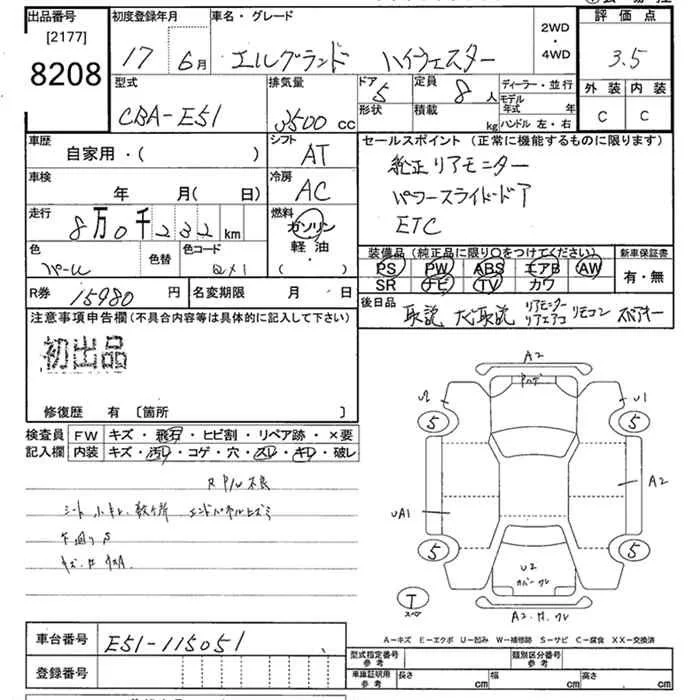 出品番号 初度登録年月 車名・グレード 2WD ・ 4WD 評価点
[2177] 17年 6月 エルグランド ハイウェスター 3.5
8208
型式 排気量 ドア 定員 ディーラー・並行 外装 内装
CBA-E51 3500cc 5 8人 モデル年式 年 C C
形状 積載 kg ハンドル 左・右
車歴 シフト セールスポイント (正常に機能するものに限ります)
自家用・( ) AT 純正リアモニター
車検 冷房 パワースライドドア
年 月( 日) AC ETC
走行 燃料
8万0千232km ガソリン
色 色替 色コード 軽油・ 装備品 (純正品に限り〇をつけてください) 新車保証書
パール QX1 ( ) PS PW ABS エアB AW 有・無
SR ナビ TV カワ
R券 15980円 名変期限 月 日 後日品
取説 ナビ取説 リアモニター リモコン スペアキー
リアエアコ
注意事項申告欄(不具合内容等は具体的に記入して下さい)
初出品
修復歴 有 [箇所 ]
検査員 FW キズ・飛石・ヒビ割・リペア跡・×要
記入欄 内装 キズ・汚レ・コゲ・穴・スレ・キレ・破レ
R P/W不良
シート
下廻りS
A2
U1
5 5
A2
UA1
5 5
U2
カバーワレ
T
スペア
A2
A-キズ E-エクボ U-凹み W-補修跡 S-サビ C-腐食 XX-交換済
車台番号 E51-115051
登録番号
型式指定番号 参考 類別区分番号 参考
車庫証明用 参考 長さ cm 幅 cm 高さ cm